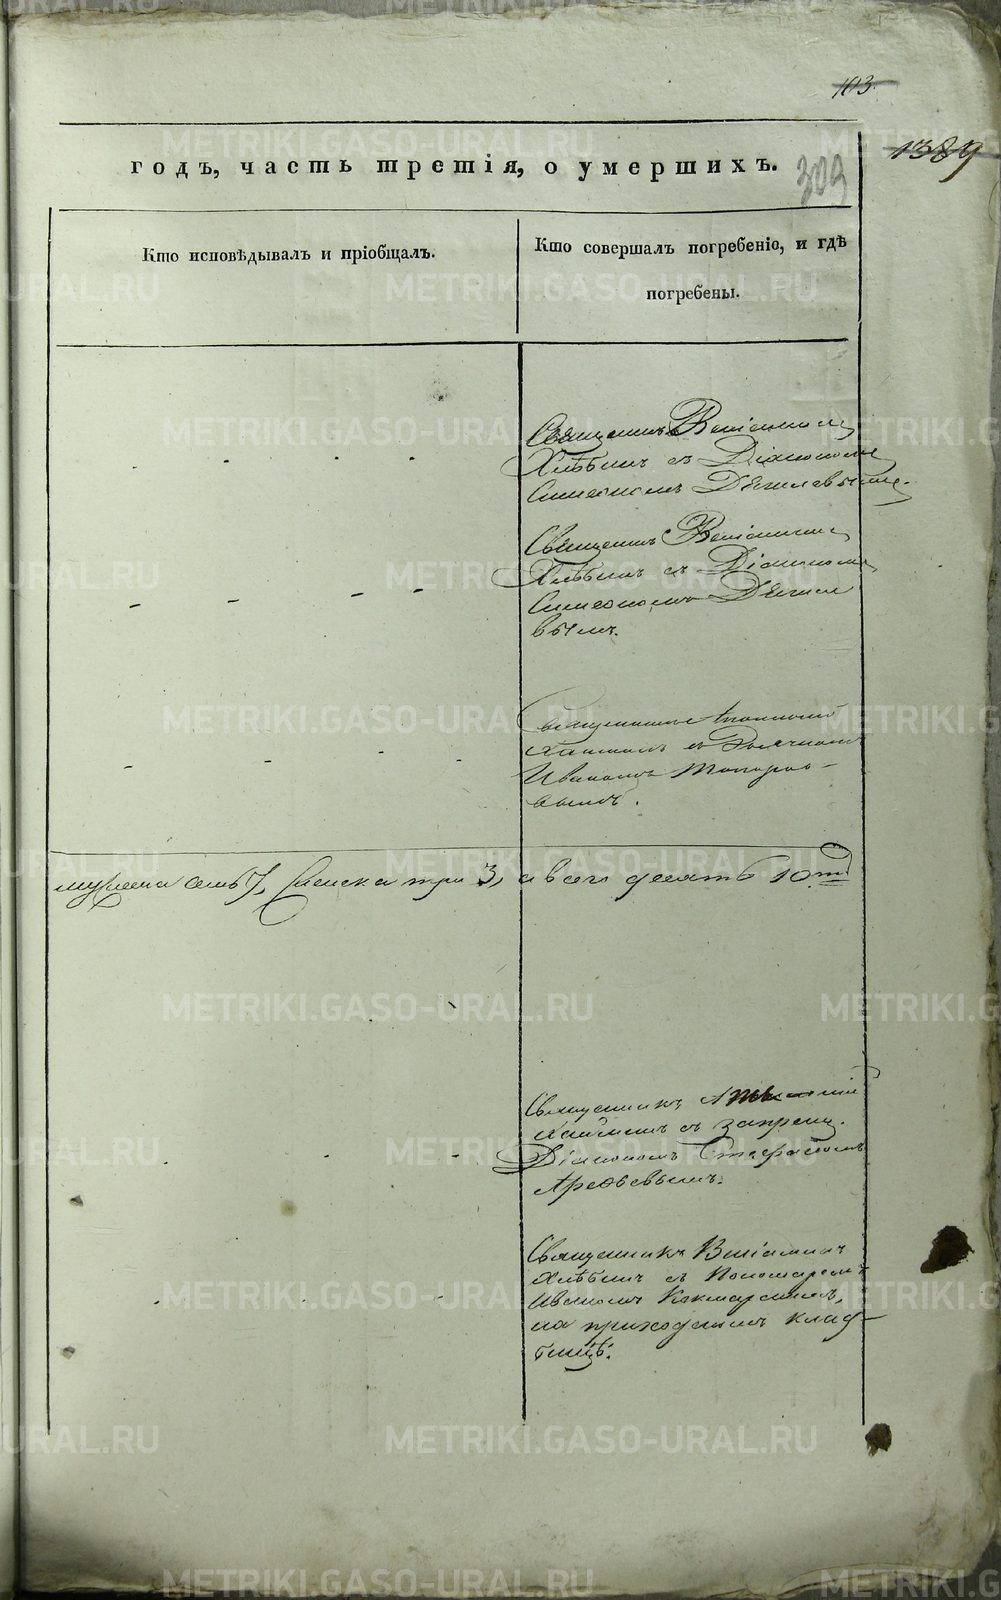 103.
1389
годъ, часть третія, о умершихъ.
309
Кто исповѣдывалъ и пріобщалъ.
Кто совершалъ погребеніе, и гдѣ
погребены.
Священникъ Веніаминъ
Хлѣбинъ съ Діакономъ
Симеономъ Дягилевымъ.
Священникъ Веніаминъ
Хлѣбинъ съ Діакономъ
Симеономъ Дягиле
вымъ.
Священникъ
съ Дьячкомъ
Иваномъ Топорко-
вымъ.
мужеска семь 7, женска три 3, а всего десять 10ть
Священникъ
съ запрещ.
Діакономъ Стефаномъ
Арефьевымъ.
Священникъ Веніаминъ
Хлѣбинъ съ Пономаремъ
Иваномъ
на приходскомъ клад-
бищѣ.
METRIKI.GASO-URAL.RU